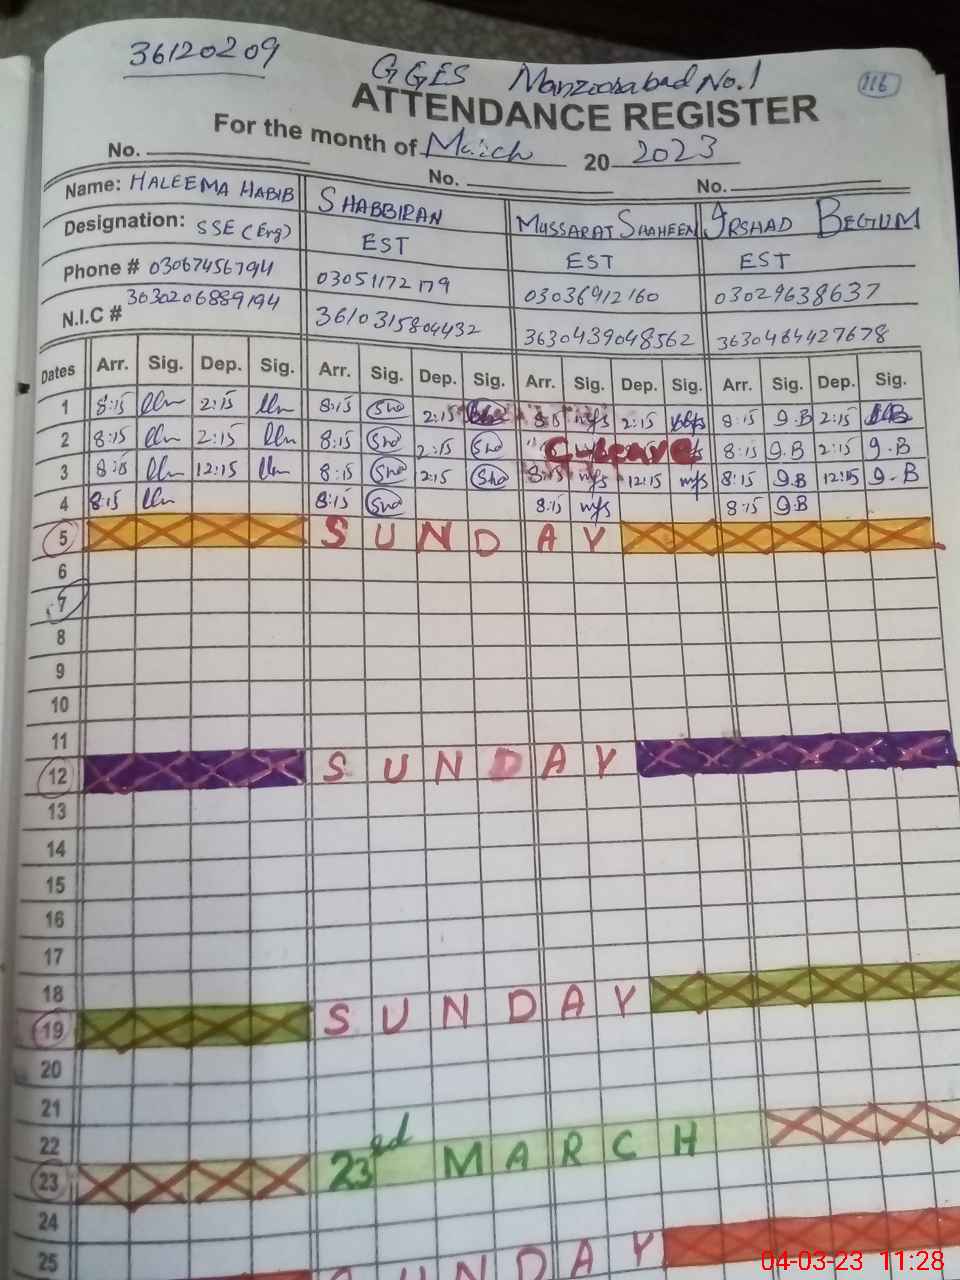 36120209
GGES Manzoorabad No.1
116
ATTENDANCE REGISTER
For the month of March 20 2023
No. No. No.
Name: HALEEMA HABIB SHABBIRAN MUSSARAT SHAHEEN IRSHAD BEGUM
Designation: SSE (Eng) EST EST EST
Phone # 03067456794 03051172179 03036912160 03029638637
N.I.C # 3630439048562 3630464427678
Dates Arr. Sig. Dep. Sig. Arr. Sig. Dep. Sig. Arr. Sig. Dep. Sig. Arr. Sig. Dep. Sig.
1 8:15 2:15 8:15 Sha 2:15 8:15 m/s 2:15 8:15 9.B 2:15
2 8:15 2:15 8:15 Sha 2:15 Sha C-Leave 8:15 9.B 2:15 9.B
3 8:15 12:15 8:15 Sha 2:15 Sha 8:15 m/s 12:15 m/s 8:15 9.B 12:15 9.B
4 8:15 8:15 Sha 8:15 m/s 8:15 9.B
5 SUNDAY
6
7
8
9
10
11
12 SUNDAY
13
14
15
16
17
18
19 SUNDAY
20
21
22
23 23ed MARCH
24
25
SUNDAY
04-03-23 11:28